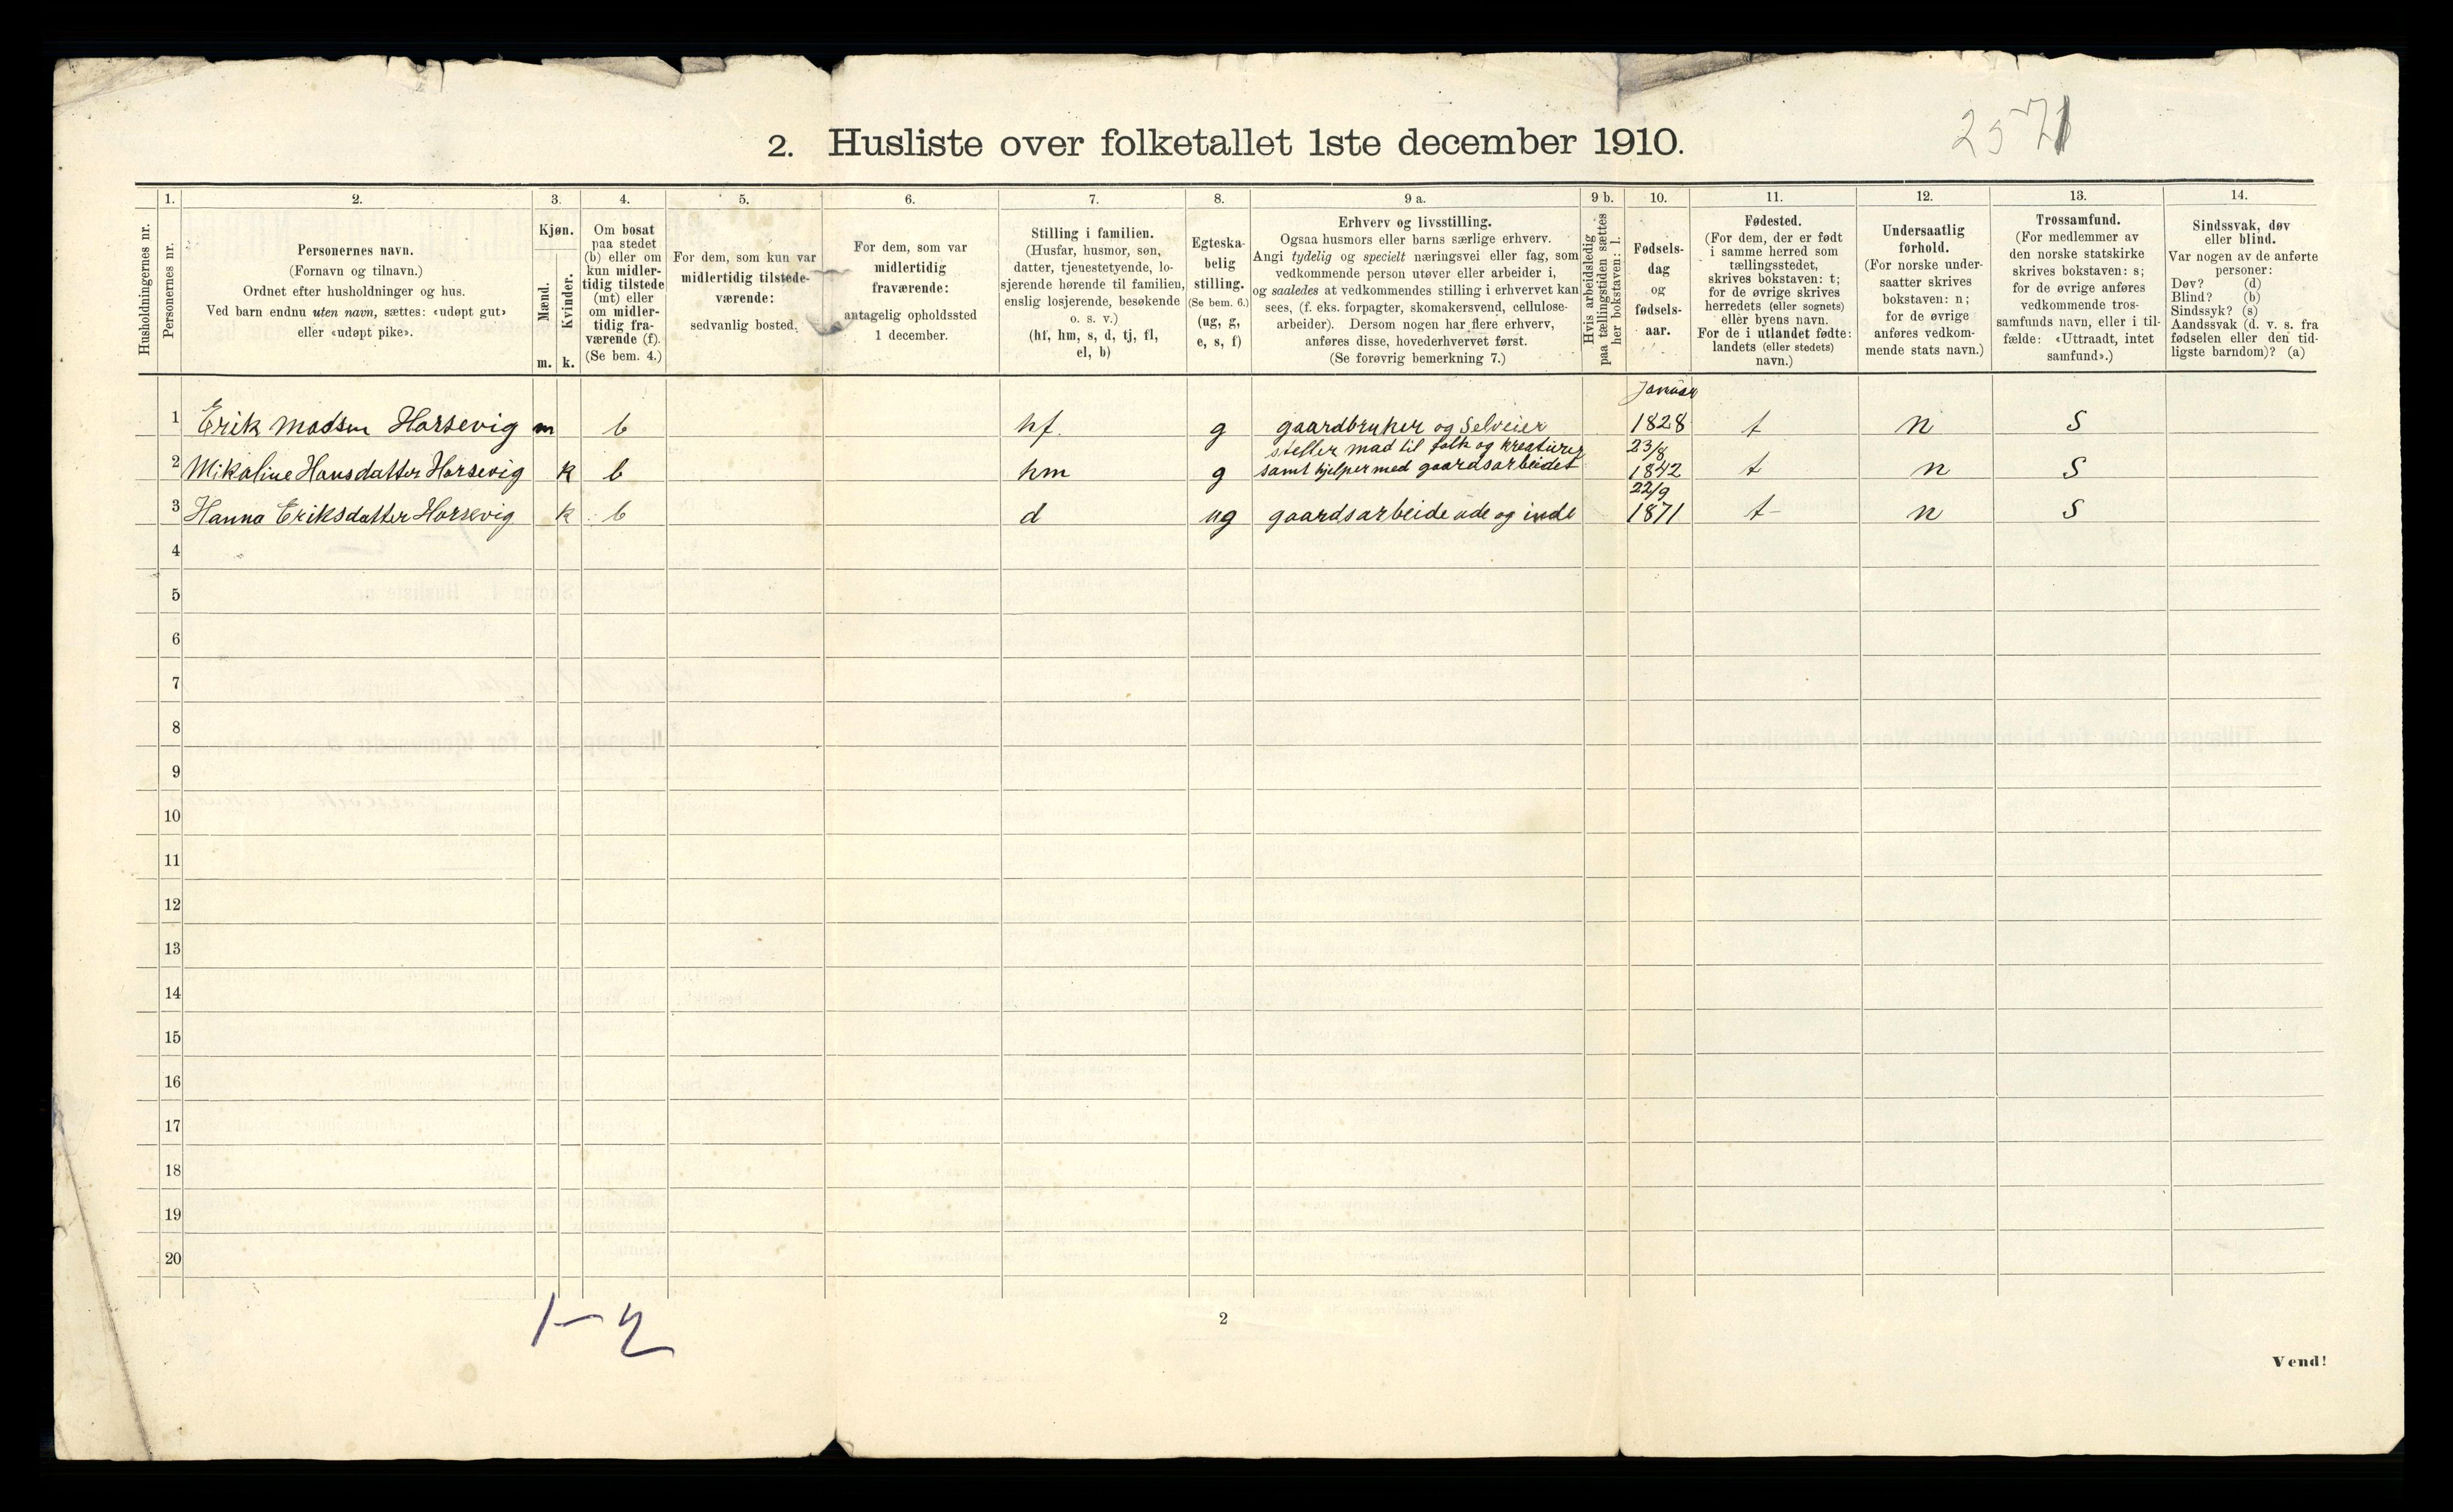 2571
2. Husliste over folketallet 1ste december 1910.
Husholdningernes nr.
1.
Personernes nr.
2.
Personernes navn.
(Fornavn og tilnavn.)
Ordnet efter husholdninger og hus.
Ved barn endnu uten navn, sættes: «udøpt gut»
eller «udøpt pike».
3.
Kjøn.
Mænd.
Kvinder.
m. k.
4.
Om bosat
paa stedet
(b) eller om
kun midler-
tidig tilstede
(mt) eller
om midler-
tidig fra-
værende (f).
(Se bem. 4.)
5.
For dem, som kun var
midlertidig tilstede-
værende:
sedvanlig bosted.
6.
For dem, som var
midlertidig
fraværende:
antagelig opholdssted
1 december.
7.
Stilling i familien.
(Husfar, husmor, søn,
datter, tjenestetyende, lo-
sjerende hørende til familien,
enslig losjerende, besøkende
o. s. v.)
(hf, hm, s, d, tj, fl,
el, b)
8.
Egteska-
belig
stilling.
(Se bem. 6.)
(ug, g,
e, s, f)
9 a.
Erhverv og livsstilling.
Ogsaa husmors eller barns særlige erhverv.
Angi tydelig og specielt næringsvei eller fag, som
vedkommende person utøver eller arbeider i,
og saaledes at vedkommendes stilling i erhvervet kan
sees, (f. eks. forpagter, skomakersvend, cellulose-
arbeider). Dersom nogen har flere erhverv,
anføres disse, hovederhvervet først.
(Se forøvrig bemerkning 7.)
9 b.
Hvis arbeidsledig
paa tællingstiden sættes
her bokstaven: l.
10.
Fødsels-
dag
og
fødsels-
aar.
11.
Fødested.
(For dem, der er født
i samme herred som
tællingsstedet,
skrives bokstaven: t;
for de øvrige skrives
herredets (eller sognets)
eller byens navn.
For de i utlandet fødte:
landets (eller stedets)
navn.)
12.
Undersaatlig
forhold.
(For norske under-
saatter skrives
bokstaven: n;
for de øvrige
anføres vedkom-
mende stats navn.)
13.
Trossamfund.
(For medlemmer av
den norske statskirke
skrives bokstaven: s;
for de øvrige anføres
vedkommende tros-
samfunds navn, eller i til-
fælde: «Uttraadt, intet
samfund».)
14.
Sindssvak, døv
eller blind.
Var nogen av de anførte
personer:
Døv? (d)
Blind? (b)
Sindssyk? (s)
Aandssvak (d. v. s. fra
fødselen eller den tid-
ligste barndom)? (a)
Januar
1 Erik Madsen Horsevig m b hf. g gaardbruker og Selveier 1828 t n S
steller mad til folk og kreaturer 23/8
2 Mikaline Hansdatter Horsevig k b hm g samt hjelper med gaardsarbeidet 1842 t n S
22/9
3 Hanna Eriksdatter Horsevig k b d ug gaardsarbeide ude og inde 1871 t n S
4
5
6
7
8
9
10
11
12
13
14
15
16
17
18
19
20
1-2
2
Vend!